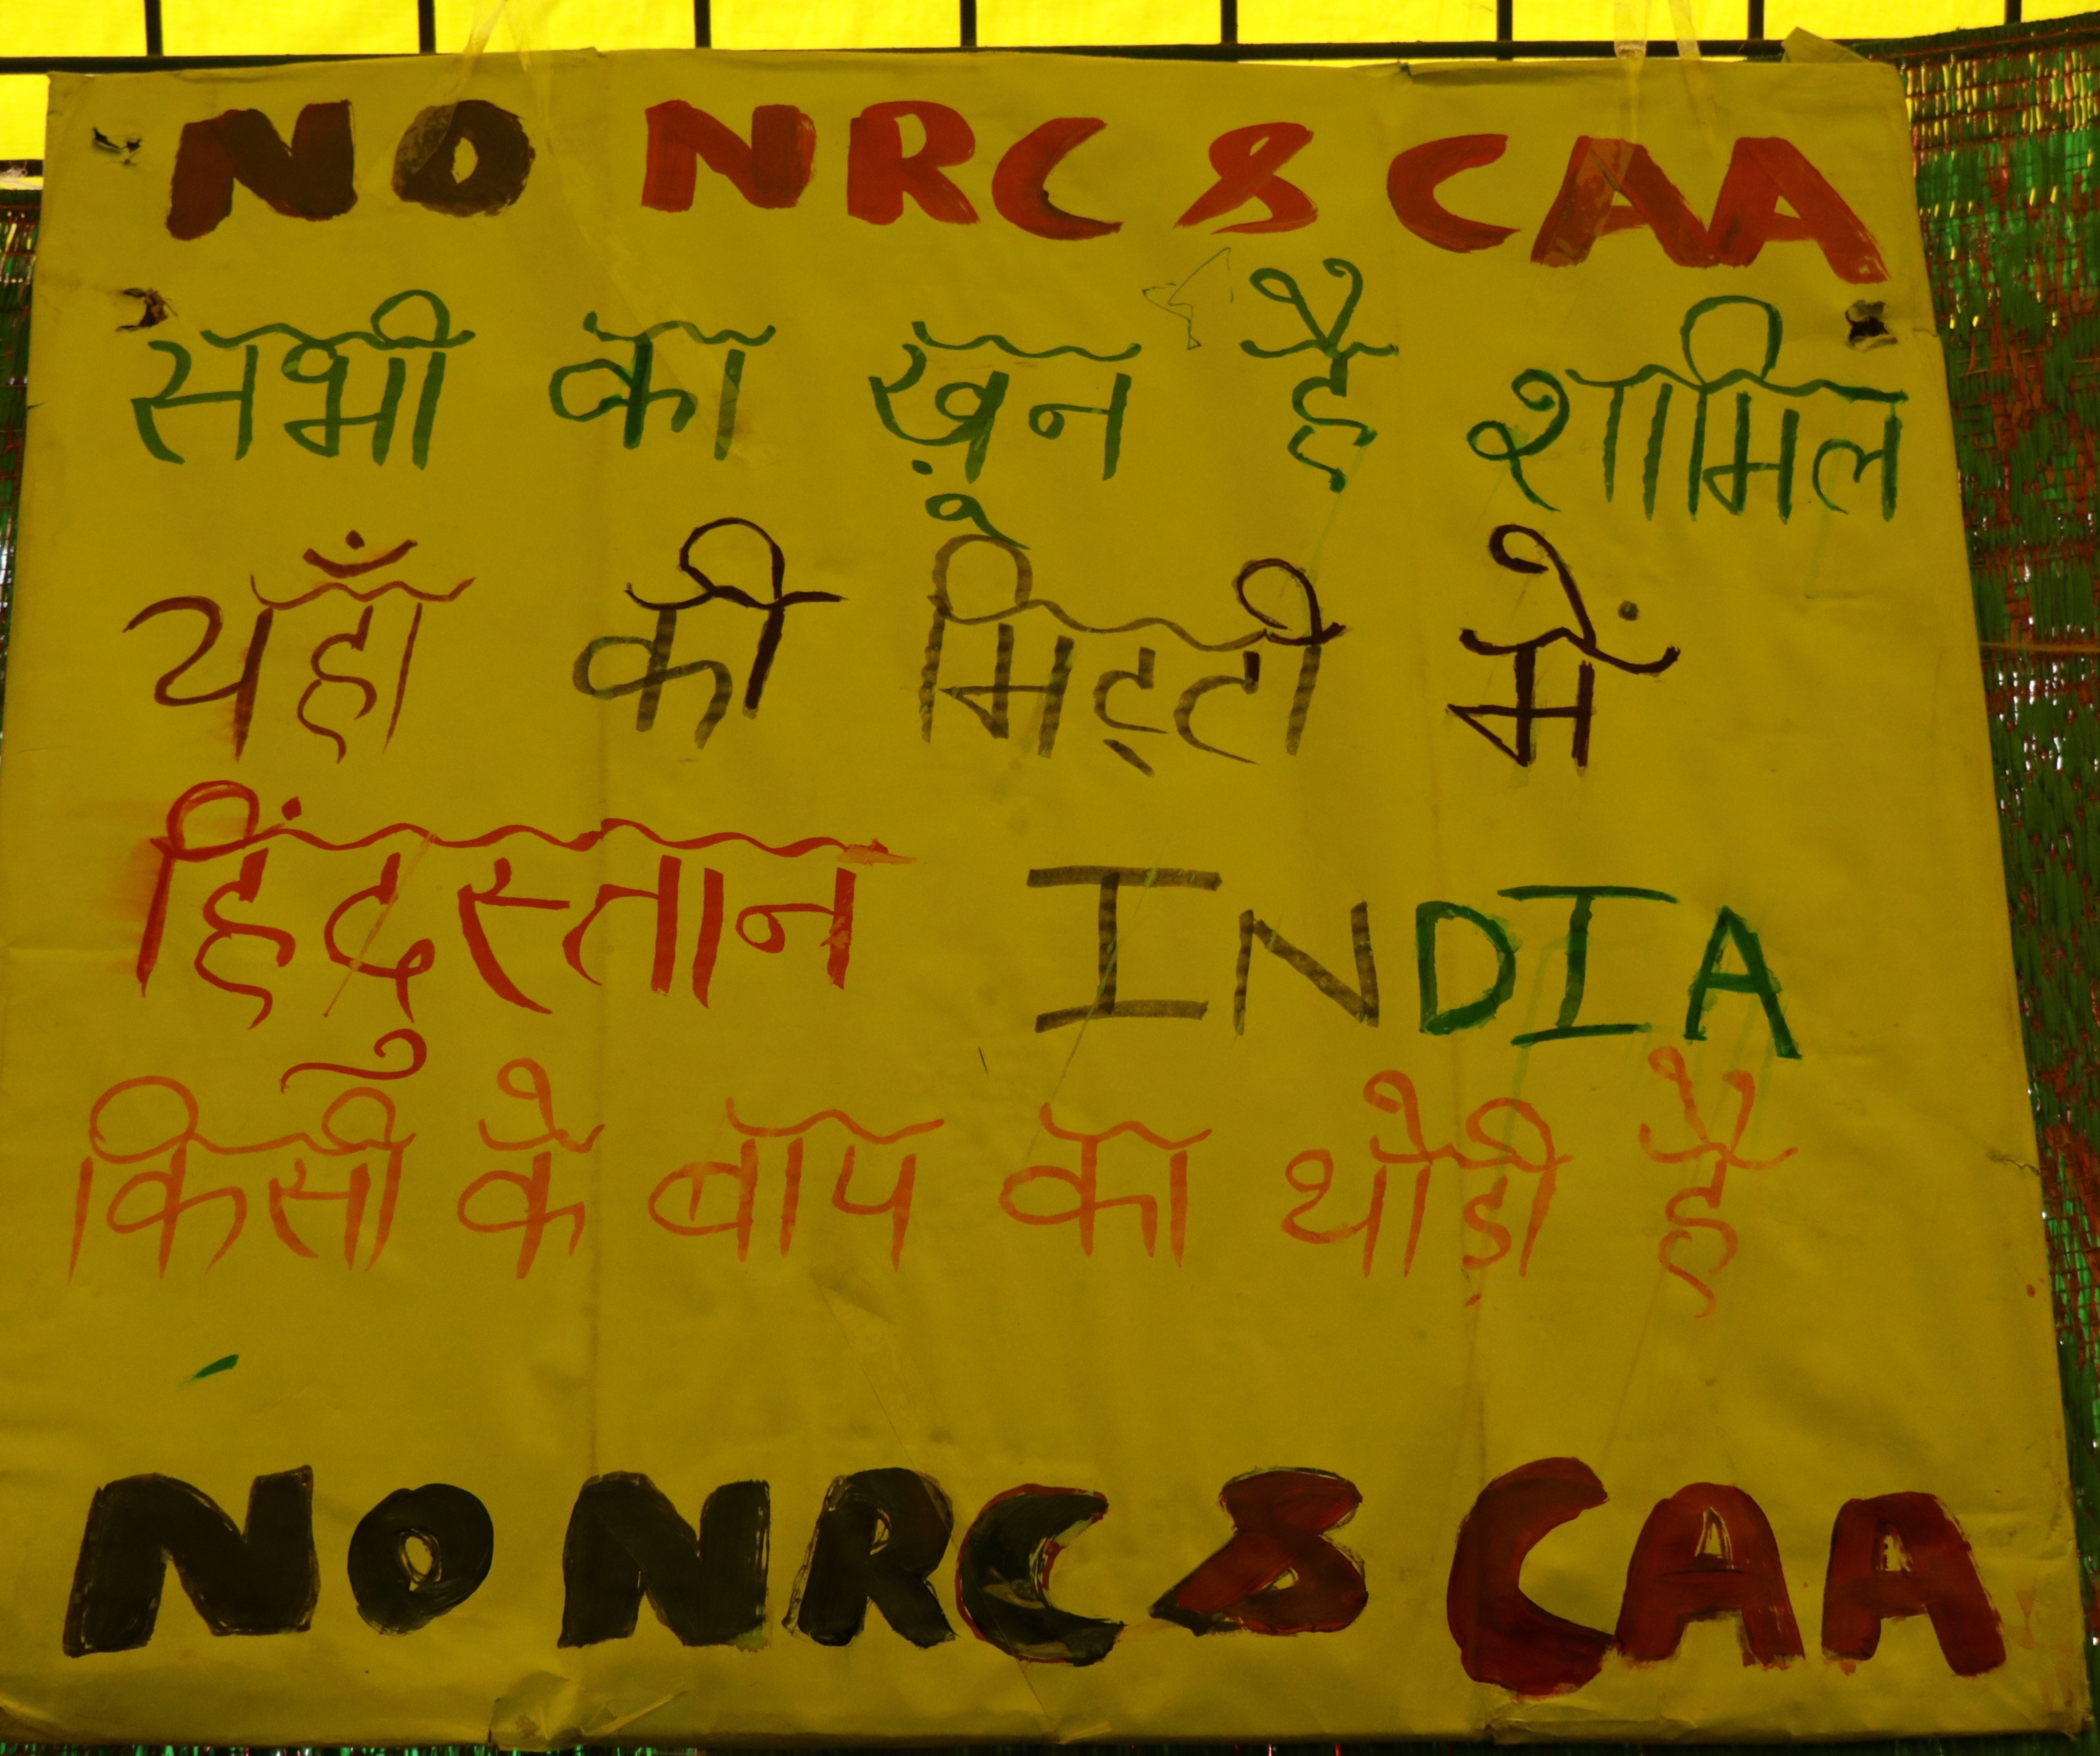 NO NRC & CAA
सभी का ख़ून है शामिल
यहाँ की मिट्टी में
हिंदुस्तान INDIA
किसी के बाप का थोड़ी है
NO NRC & CAA